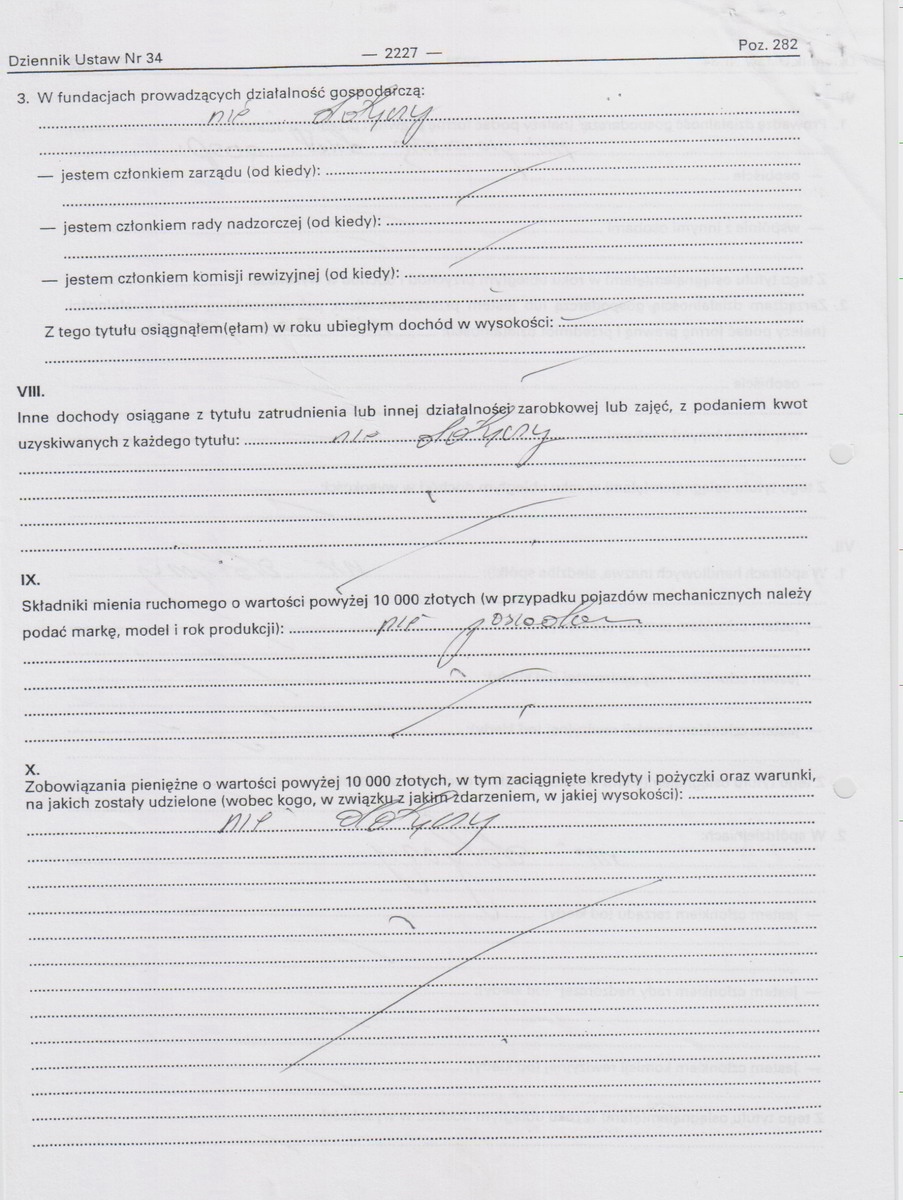 Dziennik Ustaw Nr 34 — 2227 — Poz. 282
3. W fundacjach prowadzących działalność gospodarczą:
nie dotyczy
— jestem członkiem zarządu (od kiedy):
— jestem członkiem rady nadzorczej (od kiedy):
— jestem członkiem komisji rewizyjnej (od kiedy):
Z tego tytułu osiągnąłem(ęłam) w roku ubiegłym dochód w wysokości:
VIII.
Inne dochody osiągane z tytułu zatrudnienia lub innej działalności zarobkowej lub zajęć, z podaniem kwot
uzyskiwanych z każdego tytułu: nie dotyczy
IX.
Składniki mienia ruchomego o wartości powyżej 10 000 złotych (w przypadku pojazdów mechanicznych należy
podać markę, model i rok produkcji): nie posiadam
X.
Zobowiązania pieniężne o wartości powyżej 10 000 złotych, w tym zaciągnięte kredyty i pożyczki oraz warunki,
na jakich zostały udzielone (wobec kogo, w związku z jakim zdarzeniem, w jakiej wysokości):
nie dotyczy